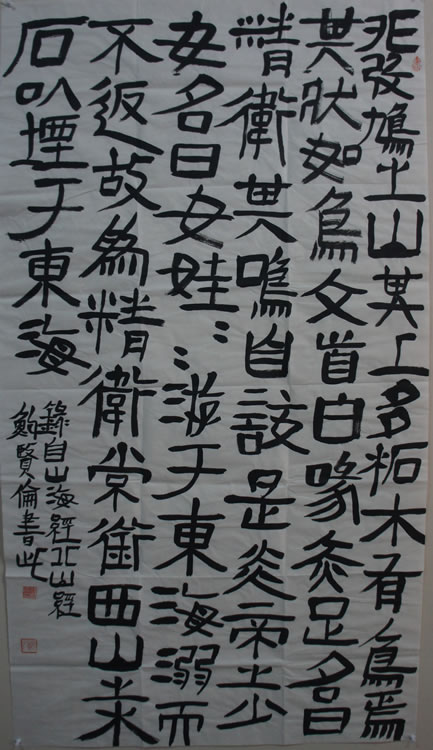 北發鳩之山其上多柘木有鳥焉
其狀如烏文首白喙赤足名曰
精衛其鳴自詨是炎帝之少
女名曰女娃〻游于東海溺而
不返故為精衛常銜西山之木
石以堙于東海
錄自山海經北山經
鮑賢倫書此